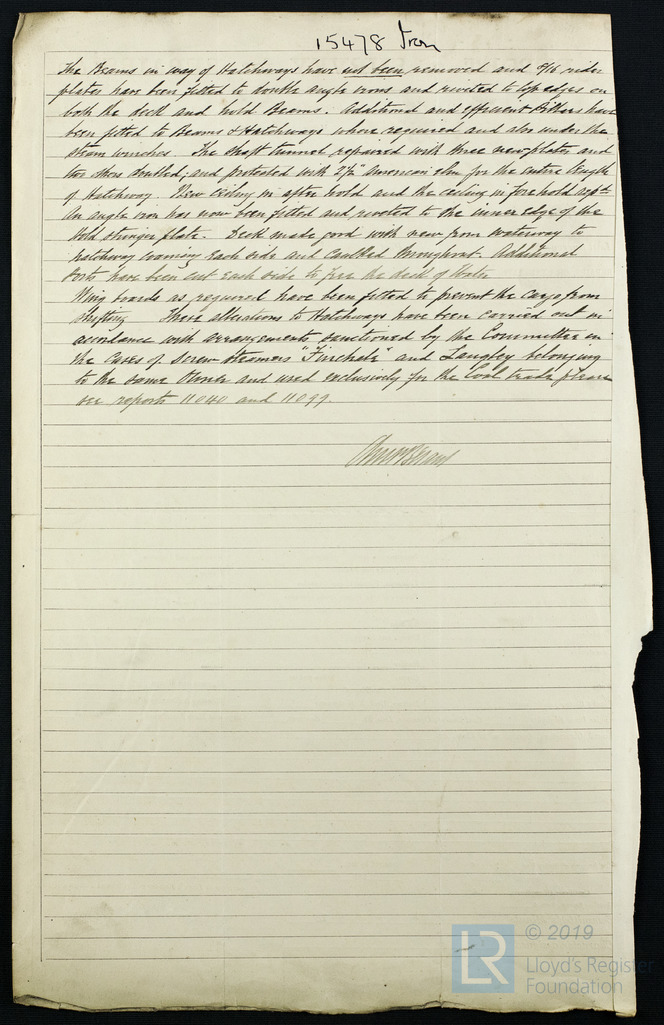 15478 Iron
The Beams in way of Hatchways have not been removed and 9/16 rider
plates have been fitted to double angle irons and rivited to top edges on
both the deck and hold Beams. Additional and efficient Pillars have
been fitted to Beams & Hatchways where required and also under the
steam winches. The shaft tunnel repaired with three new plates and
two others doubled; and protected with 2½" American elm for the entire length
of Hatchway. New Ceiling in after hold and the ceiling in fore hold repd.
An angle iron has now been fitted and riveted to the inner edge of the
Hold stringer plate. Deck made good with new from Waterway to
hatchway coaming each side and caulked throughout. Additional
Ports have been cut each side to free the deck of Water
Wing boards as required have been fitted to prevent the cargo from
shifting These alterations to Hatchways have been carried out in
accordance with arrangements sanctioned by the Committee in
the Cases of Screw Steamers "Finchale" and Langley belonging
to the same Owners and used exclusively for the Coal trade please
see reports 11040 and 11099.
© 2019
LR
Lloyd's Register
Foundation